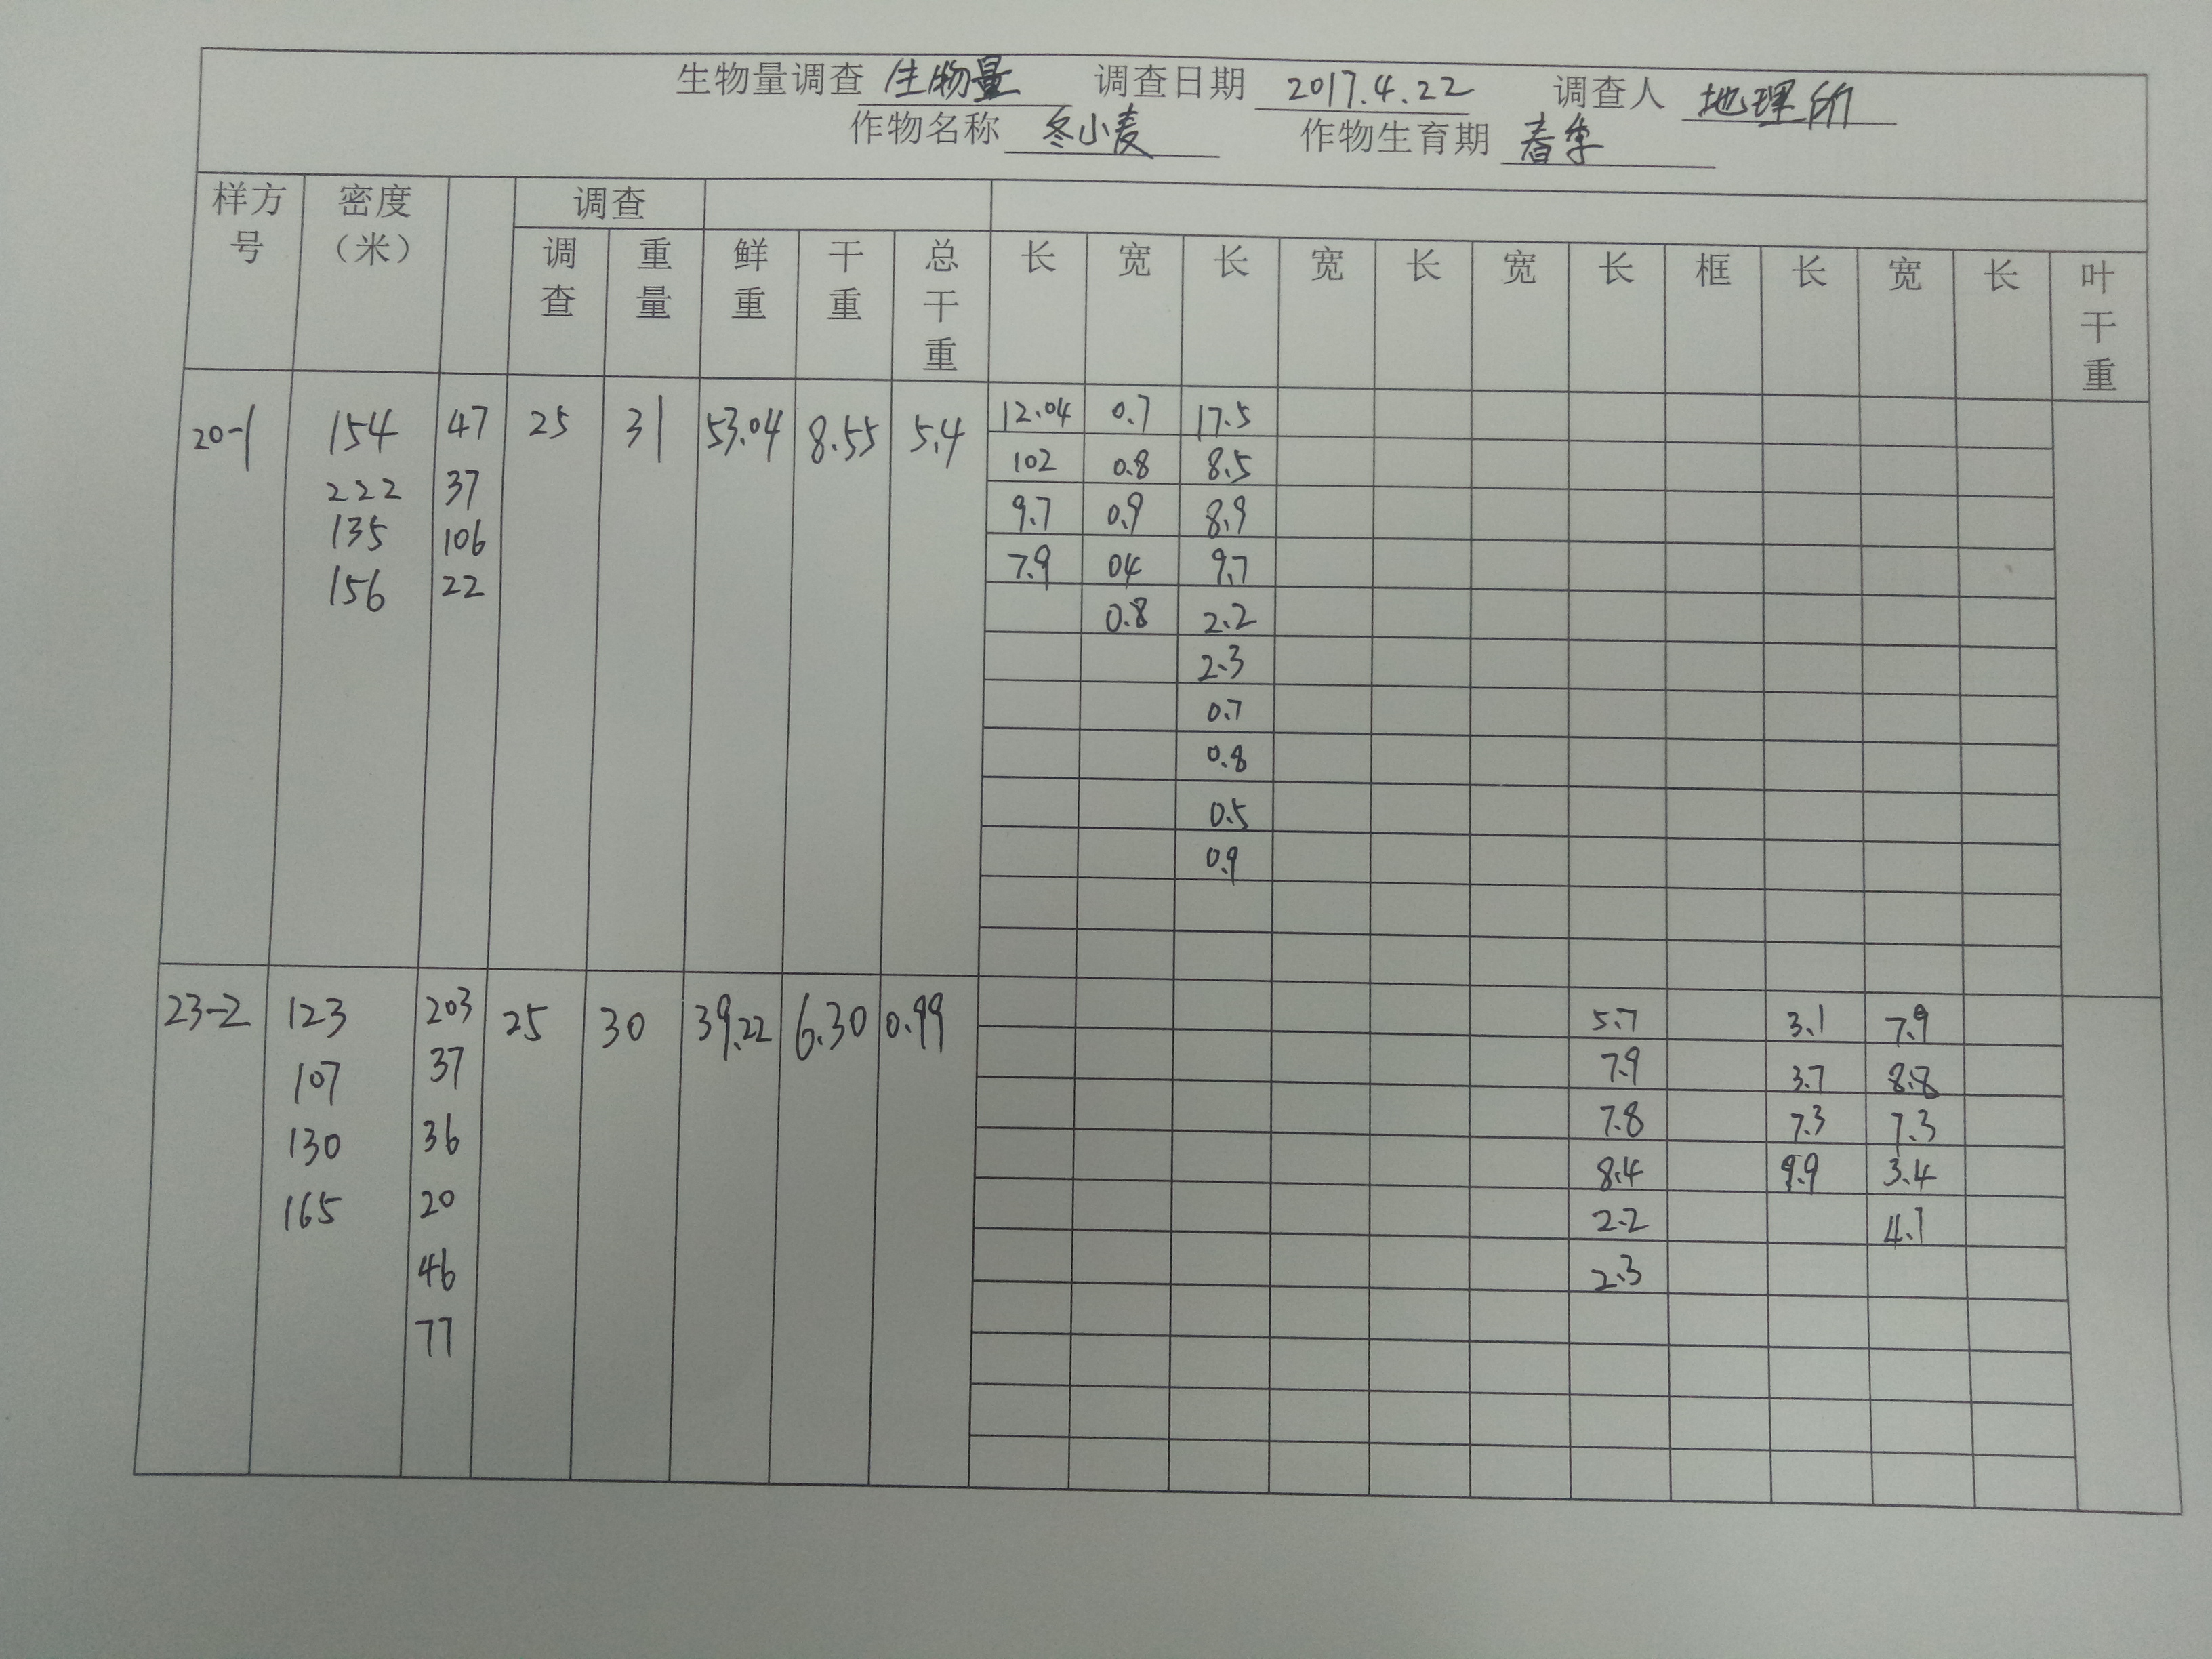 生物量调查 生物量 调查日期 2017.4.22 调查人 地理所
作物名称 冬小麦 作物生育期 春季
样方号 密度（米） 调查
调查 重量 鲜重 干重 总干重 长 宽 长 宽 长 宽 长 框 长 宽 长 叶干重
20-1 154 47 25 31 53.04 8.55 5.4 12.04 0.7 17.5
102 0.8 8.5
222 37 9.7 0.9 8.9
135 106 7.9 04 9.7
156 22 0.8 2.2
2.3
0.7
0.8
0.5
0.9
23-2 123 203 25 30 39.22 6.30 0.99 5.7 3.1 7.9
107 37 7.9 3.7 8.8
130 36 7.8 7.3 7.3
8.4 9.9 3.4
165 20 2.2 4.1
46 2.3
77